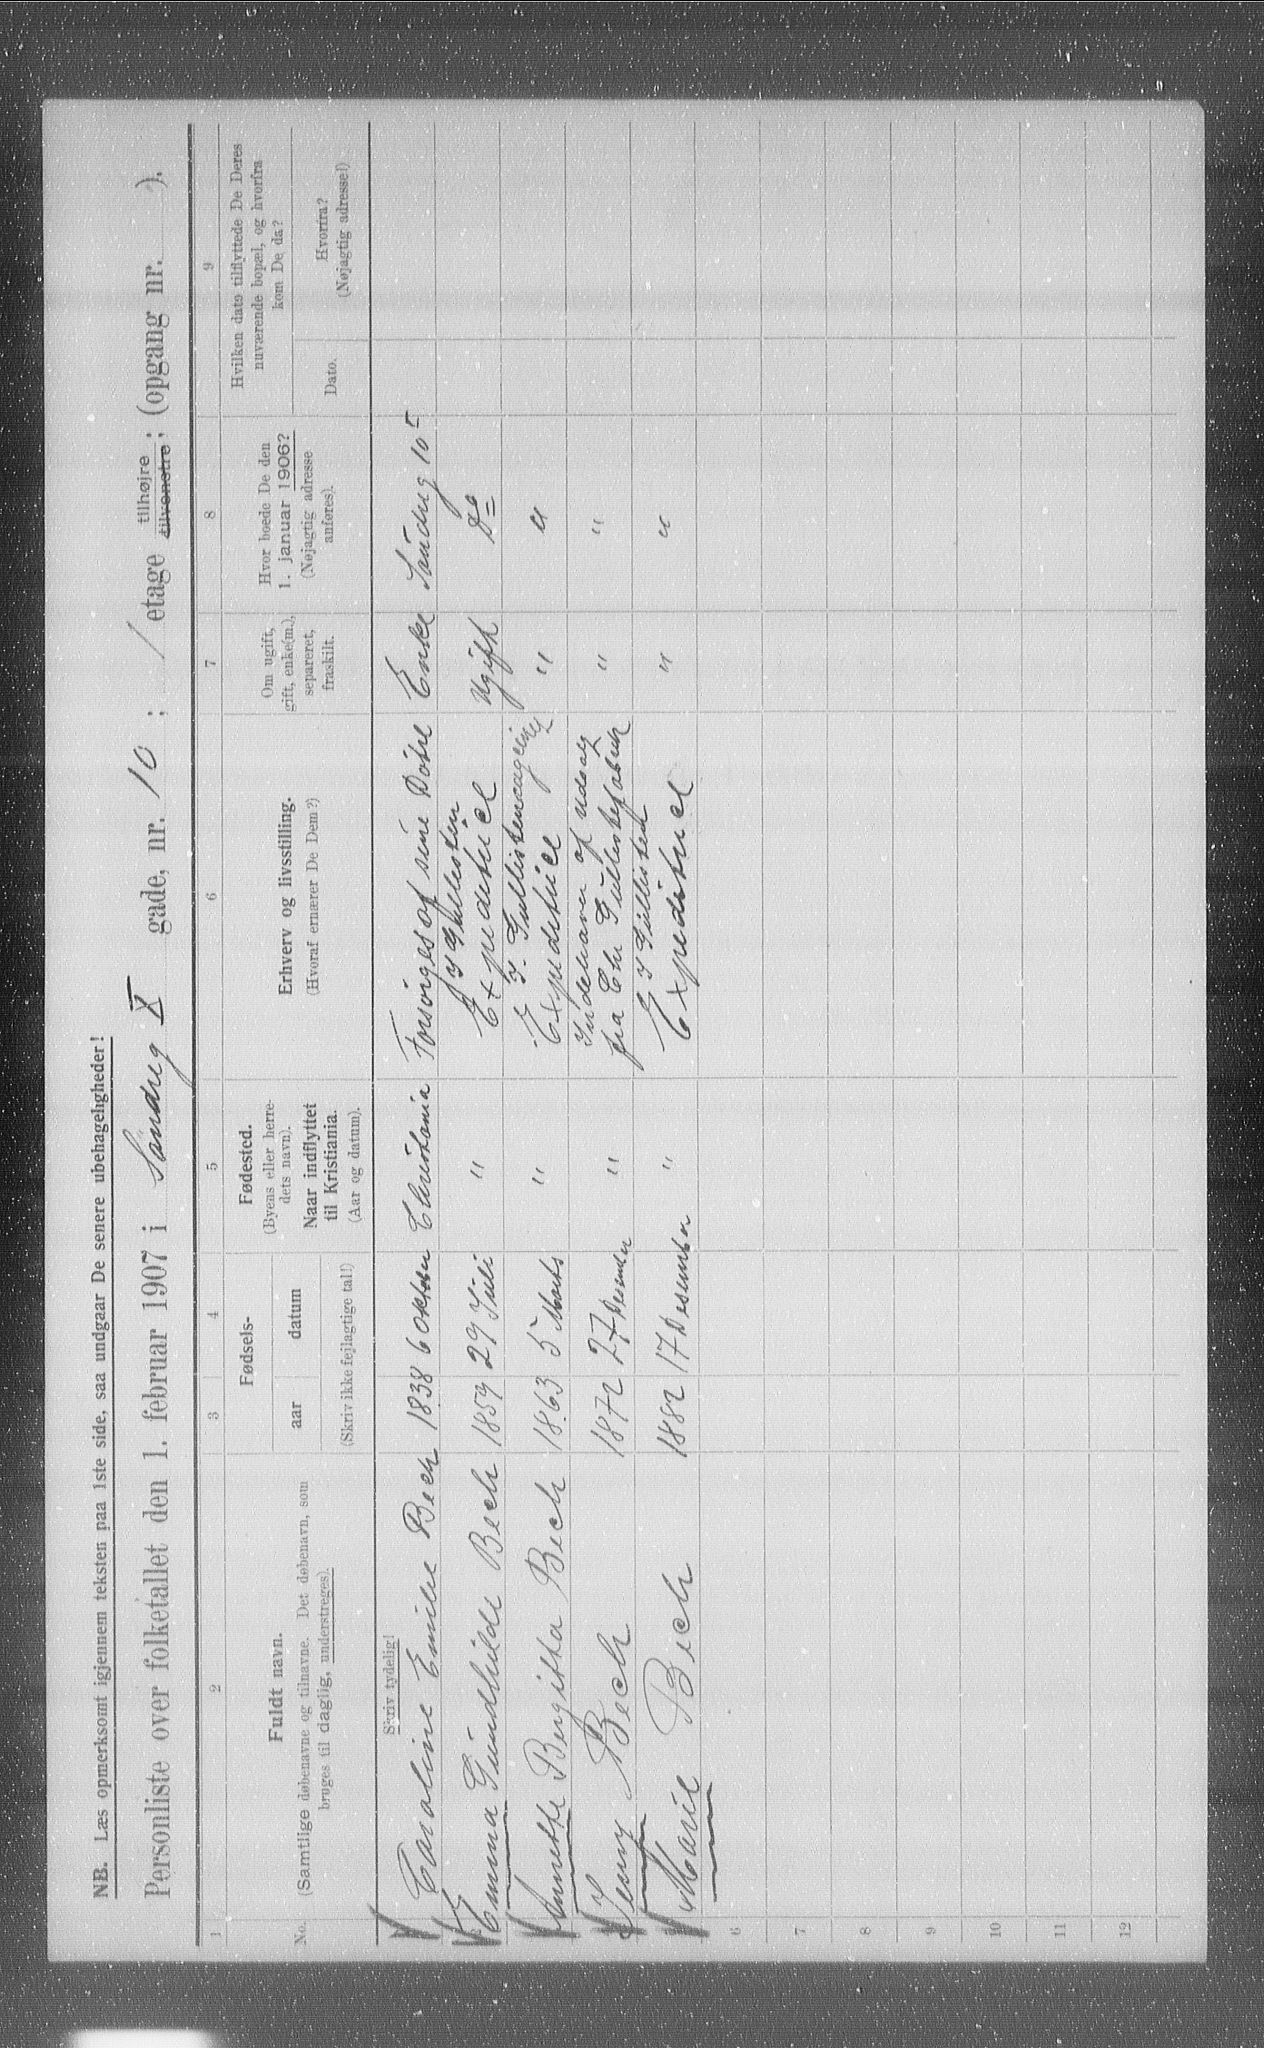 NB. Læs opmerksomt igjennem teksten paa 1ste side, saa undgaar De senere ubehageligheder!
Personliste over folketallet den 1. februar 1907 i Sandvg X gade, nr. 10 ; 1 etage tilhøjre tilvenstre ; (opgang nr. ).
1 2 3 4 5 6 7 8 9
No.
Fuldt navn.
(Samtlige døbenavne og tilnavne. Det døbenavn, som
bruges til daglig, understreges).
Skriv tydelig!
Fødsels-
aar
datum
(Skriv ikke fejlagtige tal!)
Fødested.
(Byens eller herre-
dets navn).
Naar indflyttet
til Kristiania.
(Aar og datum).
Erhverv og livsstilling.
(Hvoraf ernærer De Dem?)
Om ugift,
gift, enke(m.),
separeret,
fraskilt.
Hvor boede De den
1. januar 1906?
(Nøjagtig adresse
anføres).
Hvilken dato tilflyttede De Deres
nuværende bopæl, og hvorfra
kom De da?
Dato.
Hvorfra?
(Nøjagtig adresse!)
Caroline Emilie Bech 1838 6 Oktober Christania Forsörges af sine Dötre Enke Sandvg 10
Emma Gundhilde Bech 1859 29 Juli " Expeditrice Ugift Do
Annette Bergitta Bech 1863 5 Marts " Expeditrice " "
Jenny Bech 1872 27 Desember " Indehaver af Udsalg
fra Chr " "
Marie Bech 1882 17 Desember " Expeditrice " "
6
7
8
9
10
11
12